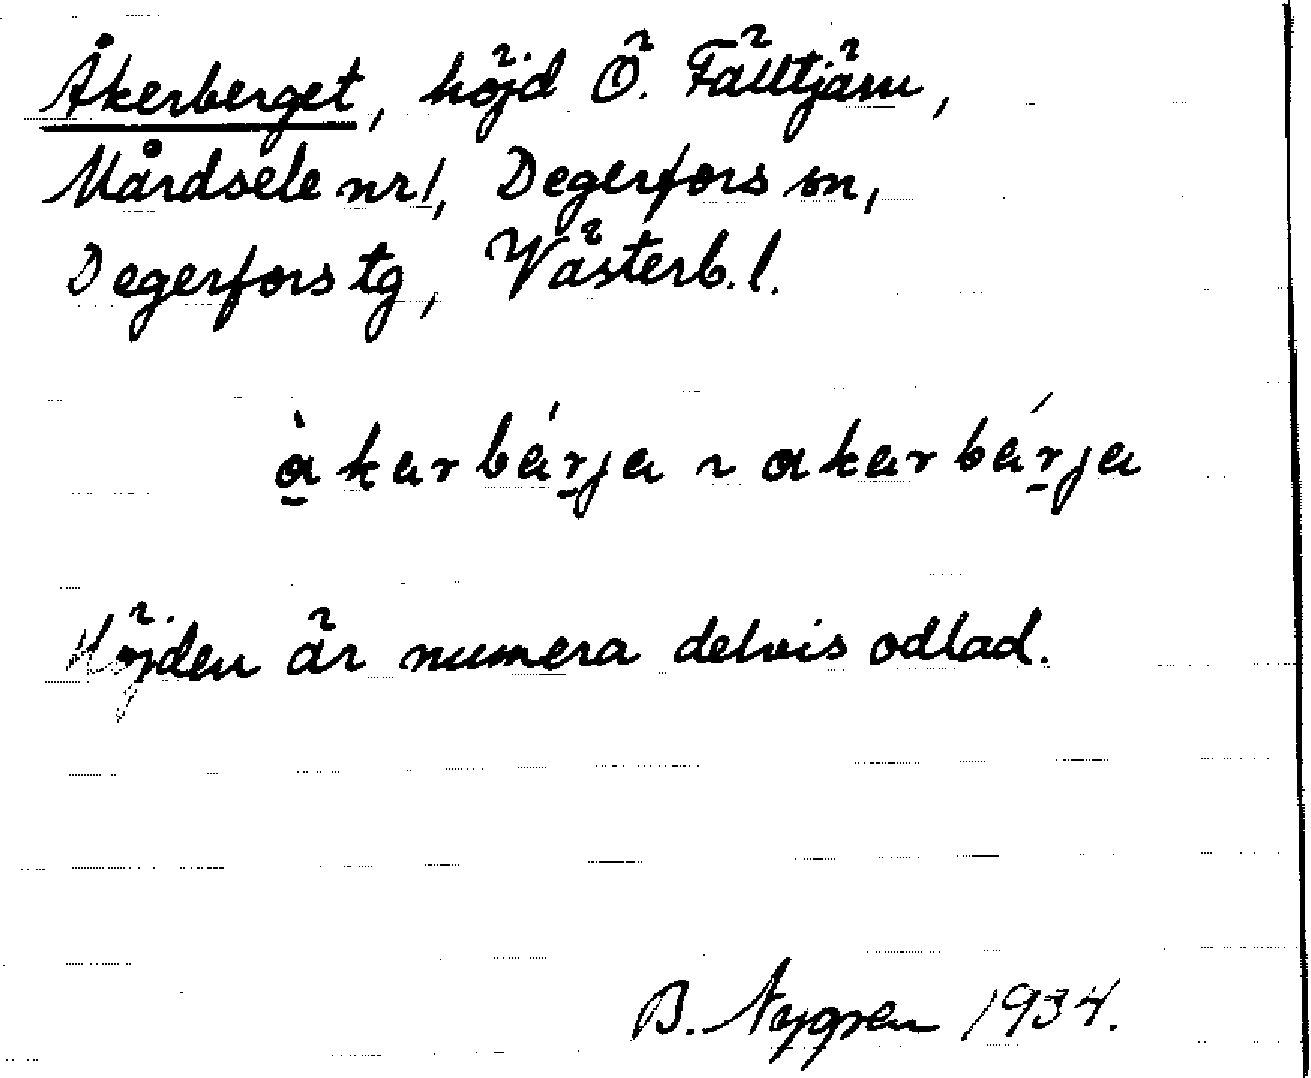 Åkerberget, höjd Ö. Fälltjärn,
Mårdsele nr 1, Degerfors sn,
Degerfors tg, Västerb. l.
àkarbárja ~ akarbárja
Höjden är numera delvis odlad.
B. Nygren 1934.